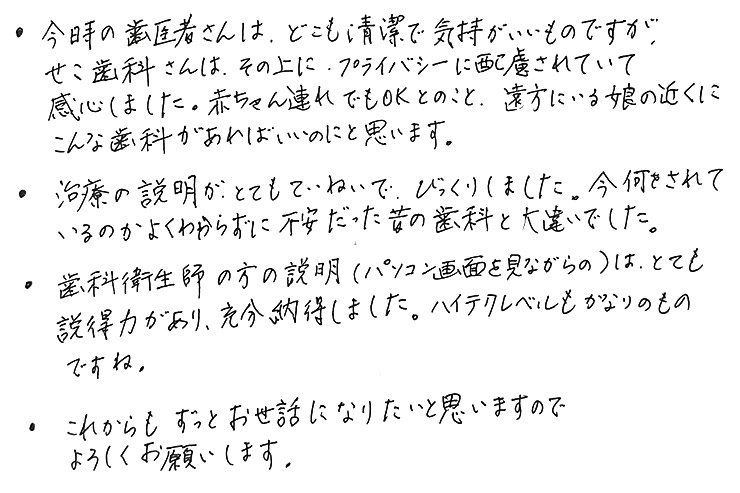 ・今日時の歯医者さんは、どこも清潔で気持がいいものですが、
せこ歯科さんは、その上に、プライバシーに配慮されていて
感心しました。赤ちゃん連れでもOKとのこと、遠方にいる娘の近くに
こんな歯科があればいいのにと思います。
・治療の説明が、とてもていねいで、びっくりしました。今何をされて
いるのかよくわからずに不安だった昔の歯科と大違いでした。
・歯科衛生師の方の説明(パソコン画面を見ながらの)は、とても
説得力があり、充分納得しました。ハイテクレベルもかなりのもの
ですね。
・これからもずっとお世話になりたいと思いますので
よろしくお願いします。